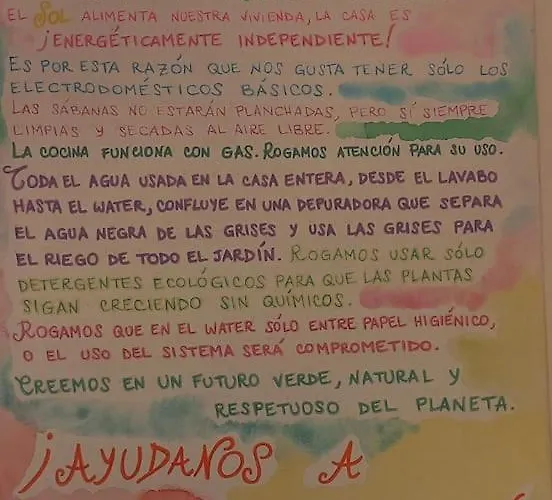 EL SOL ALIMENTA NUESTRA VIVIENDA, LA CASA ES
¡ENERGÉTICAMENTE INDEPENDIENTE!
ES POR ESTA RAZÓN QUE NOS GUSTA TENER SÓLO LOS
ELECTRODOMÉSTICOS BÁSICOS.
LAS SÁBANAS NO ESTARÁN PLANCHADAS, PERO SÍ SIEMPRE
LIMPIAS Y SECADAS AL AIRE LIBRE.
LA COCINA FUNCIONA CON GAS. ROGAMOS ATENCIÓN PARA SU USO.
TODA EL AGUA USADA EN LA CASA ENTERA, DESDE EL LAVABO
HASTA EL WATER, CONFLUYE EN UNA DEPURADORA QUE SEPARA
EL AGUA NEGRA DE LAS GRISES Y USA LAS GRISES PARA
EL RIEGO DE TODO EL JARDÍN. ROGAMOS USAR SÓLO
DETERGENTES ECOLÓGICOS PARA QUE LAS PLANTAS
SIGAN CRECIENDO SIN QUÍMICOS.
ROGAMOS QUE EN EL WATER SÓLO ENTRE PAPEL HIGIÉNICO,
O EL USO DEL SISTEMA SERÁ COMPROMETIDO.
CREEMOS EN UN FUTURO VERDE, NATURAL Y
RESPETUOSO DEL PLANETA.
¡AYUDANOS A